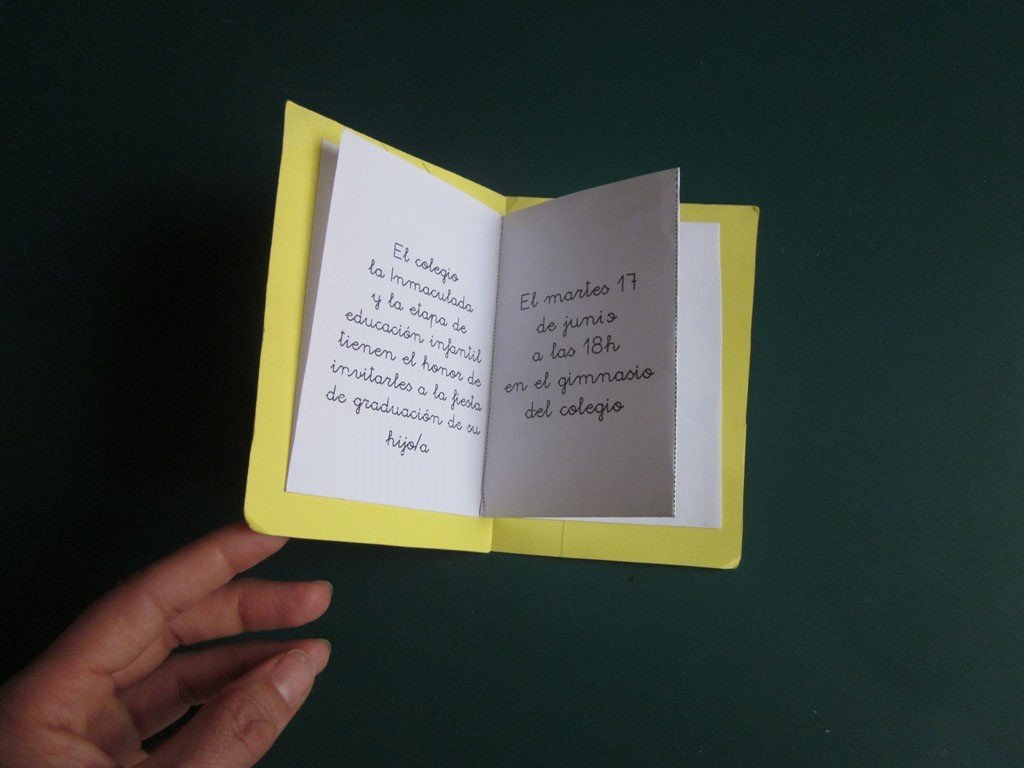 El colegio
la Inmaculada
y la etapa de
educación infantil
tienen el honor de
invitarles a la fiesta
de graduación de su
hijo/a
El martes 17
de junio
a las 18h
en el gimnasio
del colegio